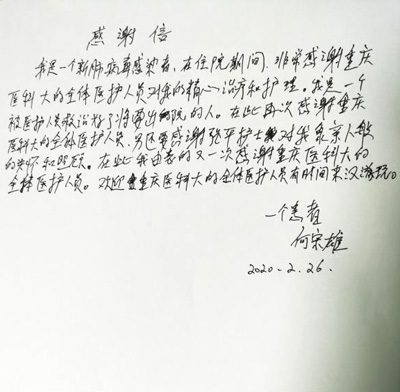 感谢信
我是一个新肺病毒感染者，在住院期间，非常感谢重庆
医科大的全体医护人员对我的精心治疗和护理。我是一个
被医护人员救治好了将要出院的人。在此再次感谢重庆
医科大的全体医护人员，另还要感谢张平护士对我亲人般
的关怀和照顾。在此我由衷的又一次感谢重庆医科大的
全体医护人员。欢迎重庆医科大的全体医护人员有时间来汉游玩。
一个患者
何宗雄
2020-2.26.